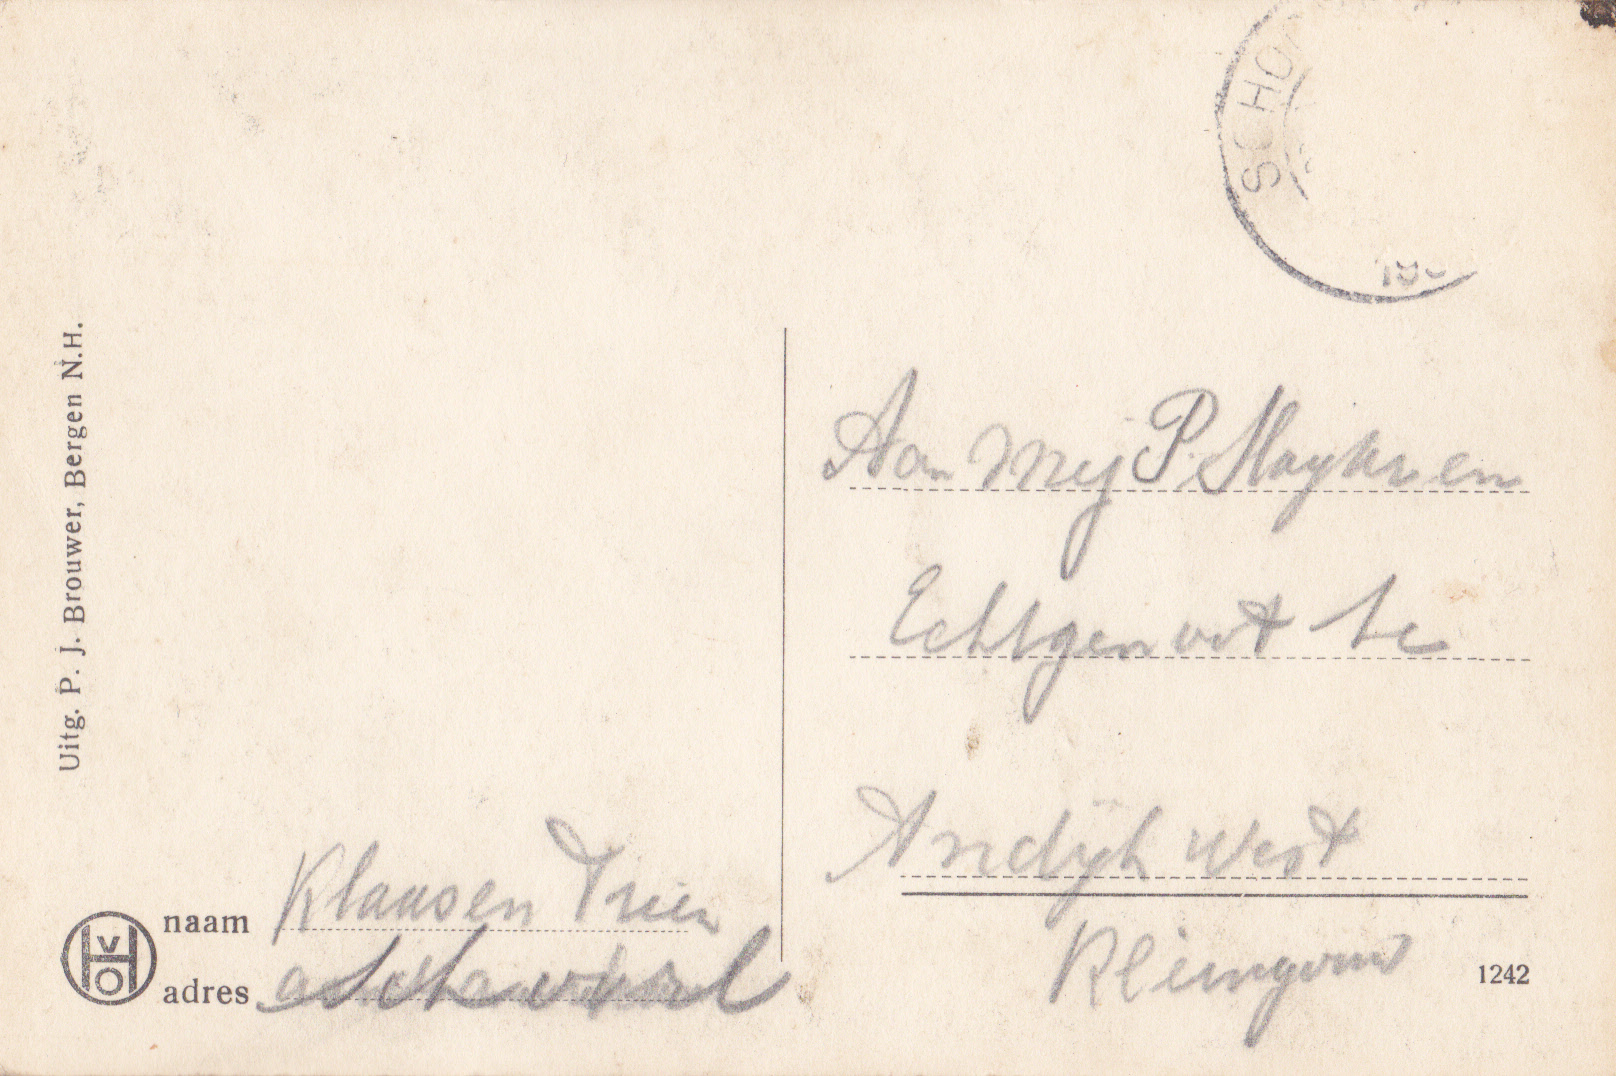 SCHO
Uitg. P. J. Brouwer, Bergen N.H.
Aan Mej P. Slagter en
Echtgenoot te
Andijk West
Kleingouw
naam Klaas en Trien
adres
VHO
1242